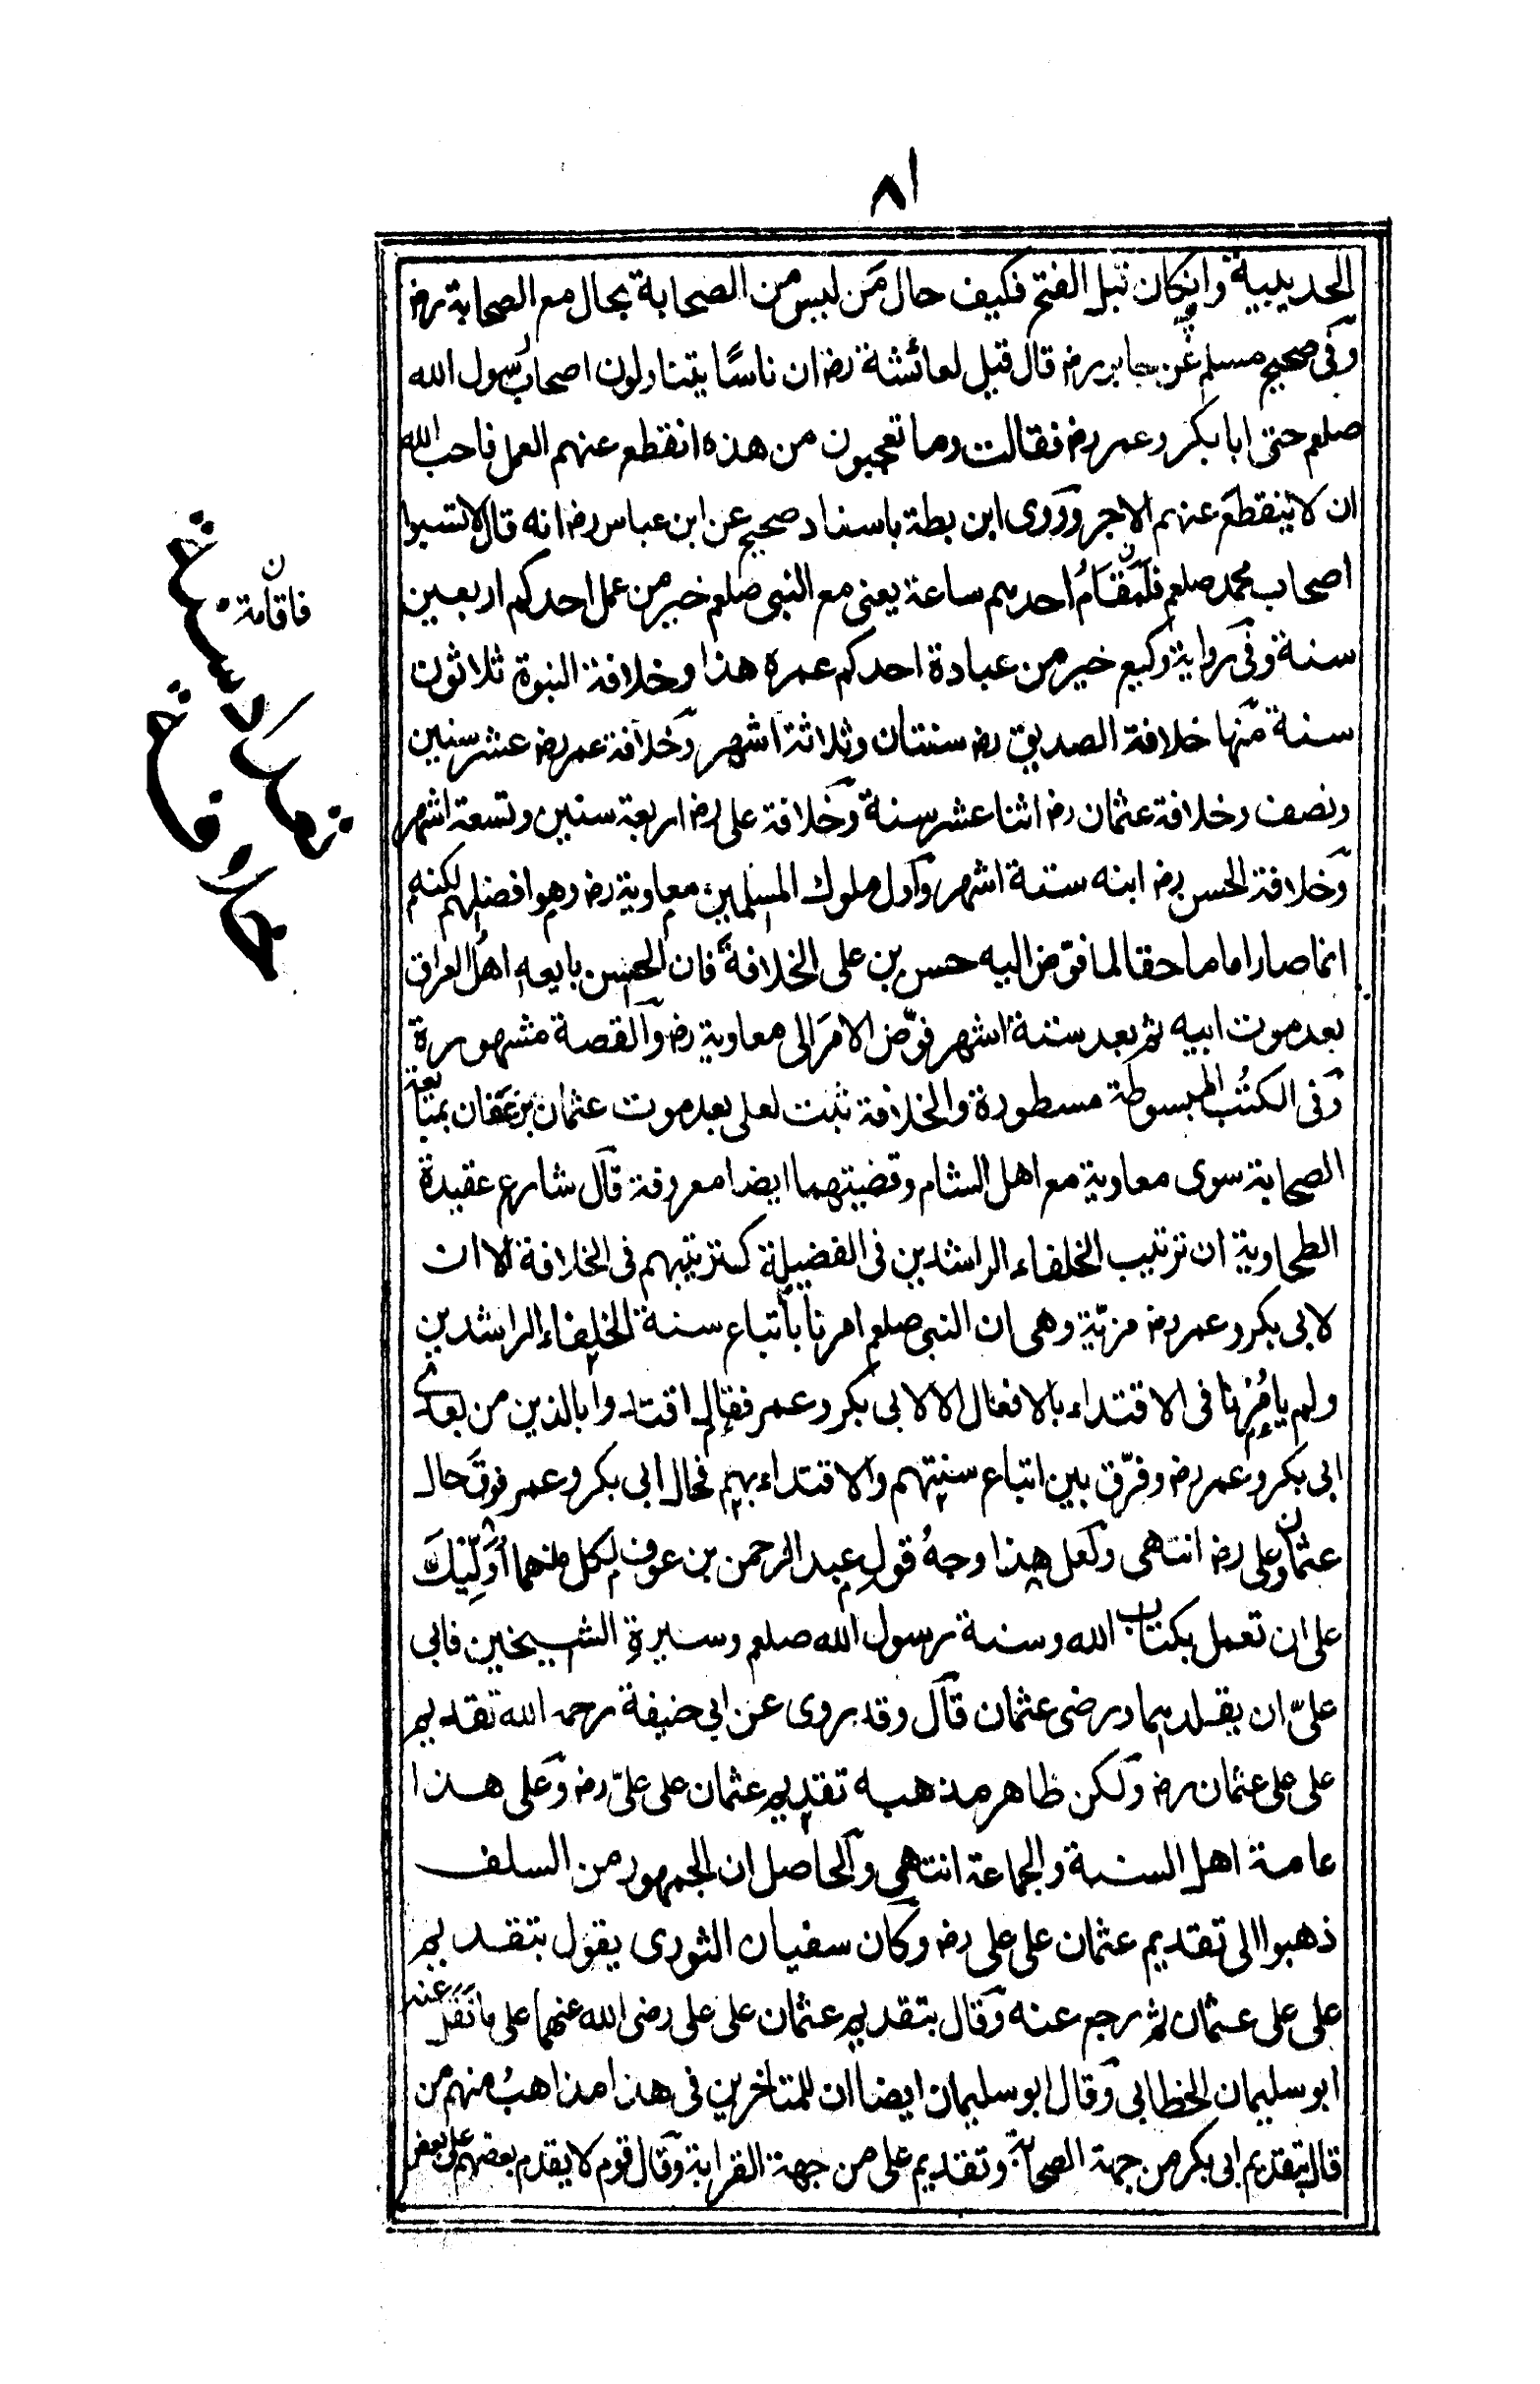 ٨١
الحديبية وانكان قبل الفتح فكيف حال مَن ليس من الصحابة بحال مع الصحابة رض
وفى صحيح مسلم عن جابر رض قال قيل لعائشة رض ان ناسًا يتناولون اصحاب رسول الله
صلعم حتى ابا بكر وعمر رض فقالت وما تعجبون من هذه انقطع عنهم العمل فاحب الله
ان لا ينقطع عنهم الاجر وروى ابن بطة باسناد صحيح عن ابن عباس رض انه قال لا تسبوا
اصحاب محمد صلعم فلَمَقَامُ احدهم ساعة يعنى مع النبى صلعم خير من عمل احدكم اربعين
سنة وفى رواية وكيع خير من عبادة احدكم عمره هذا وخلافة النبوة ثلاثون
سنة منها خلافة الصديق رض سنتان وثلاثة اشهر وخلافة عمر رض عشر سنين
ونصف وخلافة عثمان رض اثنا عشر سنة وخلافة على رض اربعة سنين وتسعة اشهر
وخلافة الحسن رض ابنه ستة اشهر واول ملوك المسلمين معاوية رض وهو افضلهم لكنه
انما صار اماما حقا لما فوّض اليه حسن بن على الخلافة فان الحسن بايعه اهل العراق
بعد موت ابيه ثم بعد ستة اشهر فوّض الامرَ الى معاوية رض والقصة مشهورة
وفى الكتُب المبسوطة مسطورة والخلافة ثبت لعلى بعد موت عثمان بن عفان بمبايعة
الصحابة سوى معاوية مع اهل الشام وقضيتهما ايضا معروفة قال شارح عقيدة
الطحاوية ان ترتيب الخلفاء الراشدين فى الفضيلة كترتيبهم فى الخلافة الا ان
لابى بكر وعمر رض مزيّة وهى ان النبى صلعم امرنا باتباع سنة الخلفاء الراشدين
ولم يامُرْنا فى الاقتداء بالافعال الا لابى بكر وعمر فقال اقتدوا بالذين من بعدى
ابى بكر وعمر رض وفرّق بين اتباع سنتهم والاقتداء بهم فحال ابى بكر وعمر فوق حال
عثمان وعلى رض انتهى ولعل هذا وجهُ قول عبد الرحمن بن عوف لكل منهما أوَلِّيكَ
على ان تعمل بكتاب الله وسنة رسول الله صلعم وسيرةِ الشيخين فابى
علىّ ان يقلدهما ورضى عثمان قال وقد روى عن ابى حنيفة رحمه الله تقديم
على على عثمان رض ولكن ظاهر مذهبه تقديم عثمان على علىّ رض وعلى هذا
عامة اهل السنة والجماعة انتهى والحاصل ان الجمهور من السلف
ذهبوا الى تقديم عثمان على على رض وكان سفيان الثورى يقول بتقديم
على على عثمان ثم رجع عنه وقال بتقديم عثمان على على رضى الله عنهما على ما نَقَل عنه
ابو سليمان الخطابى وقال ابو سليمان ايضا ان للمتاخرين فى هذا مذاهبُ منهم من
قال بتقديم ابى بكر من جهة الصحابة وتقديم على من جهة القرابة وقال قوم لا يقدم بعضهم على بعض
ن
فاقامة